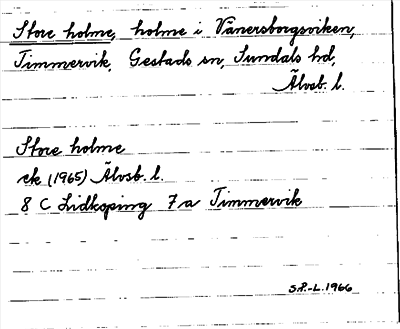 Store holme, holme i Vänersborgsviken,
Timmervik, Gestads sn, Sundals hd,
Älvsb. l.
Store holme
ek (1965) Älvsb. l.
8 C Lidköping 7 a Timmervik
S.P.-L. 1966